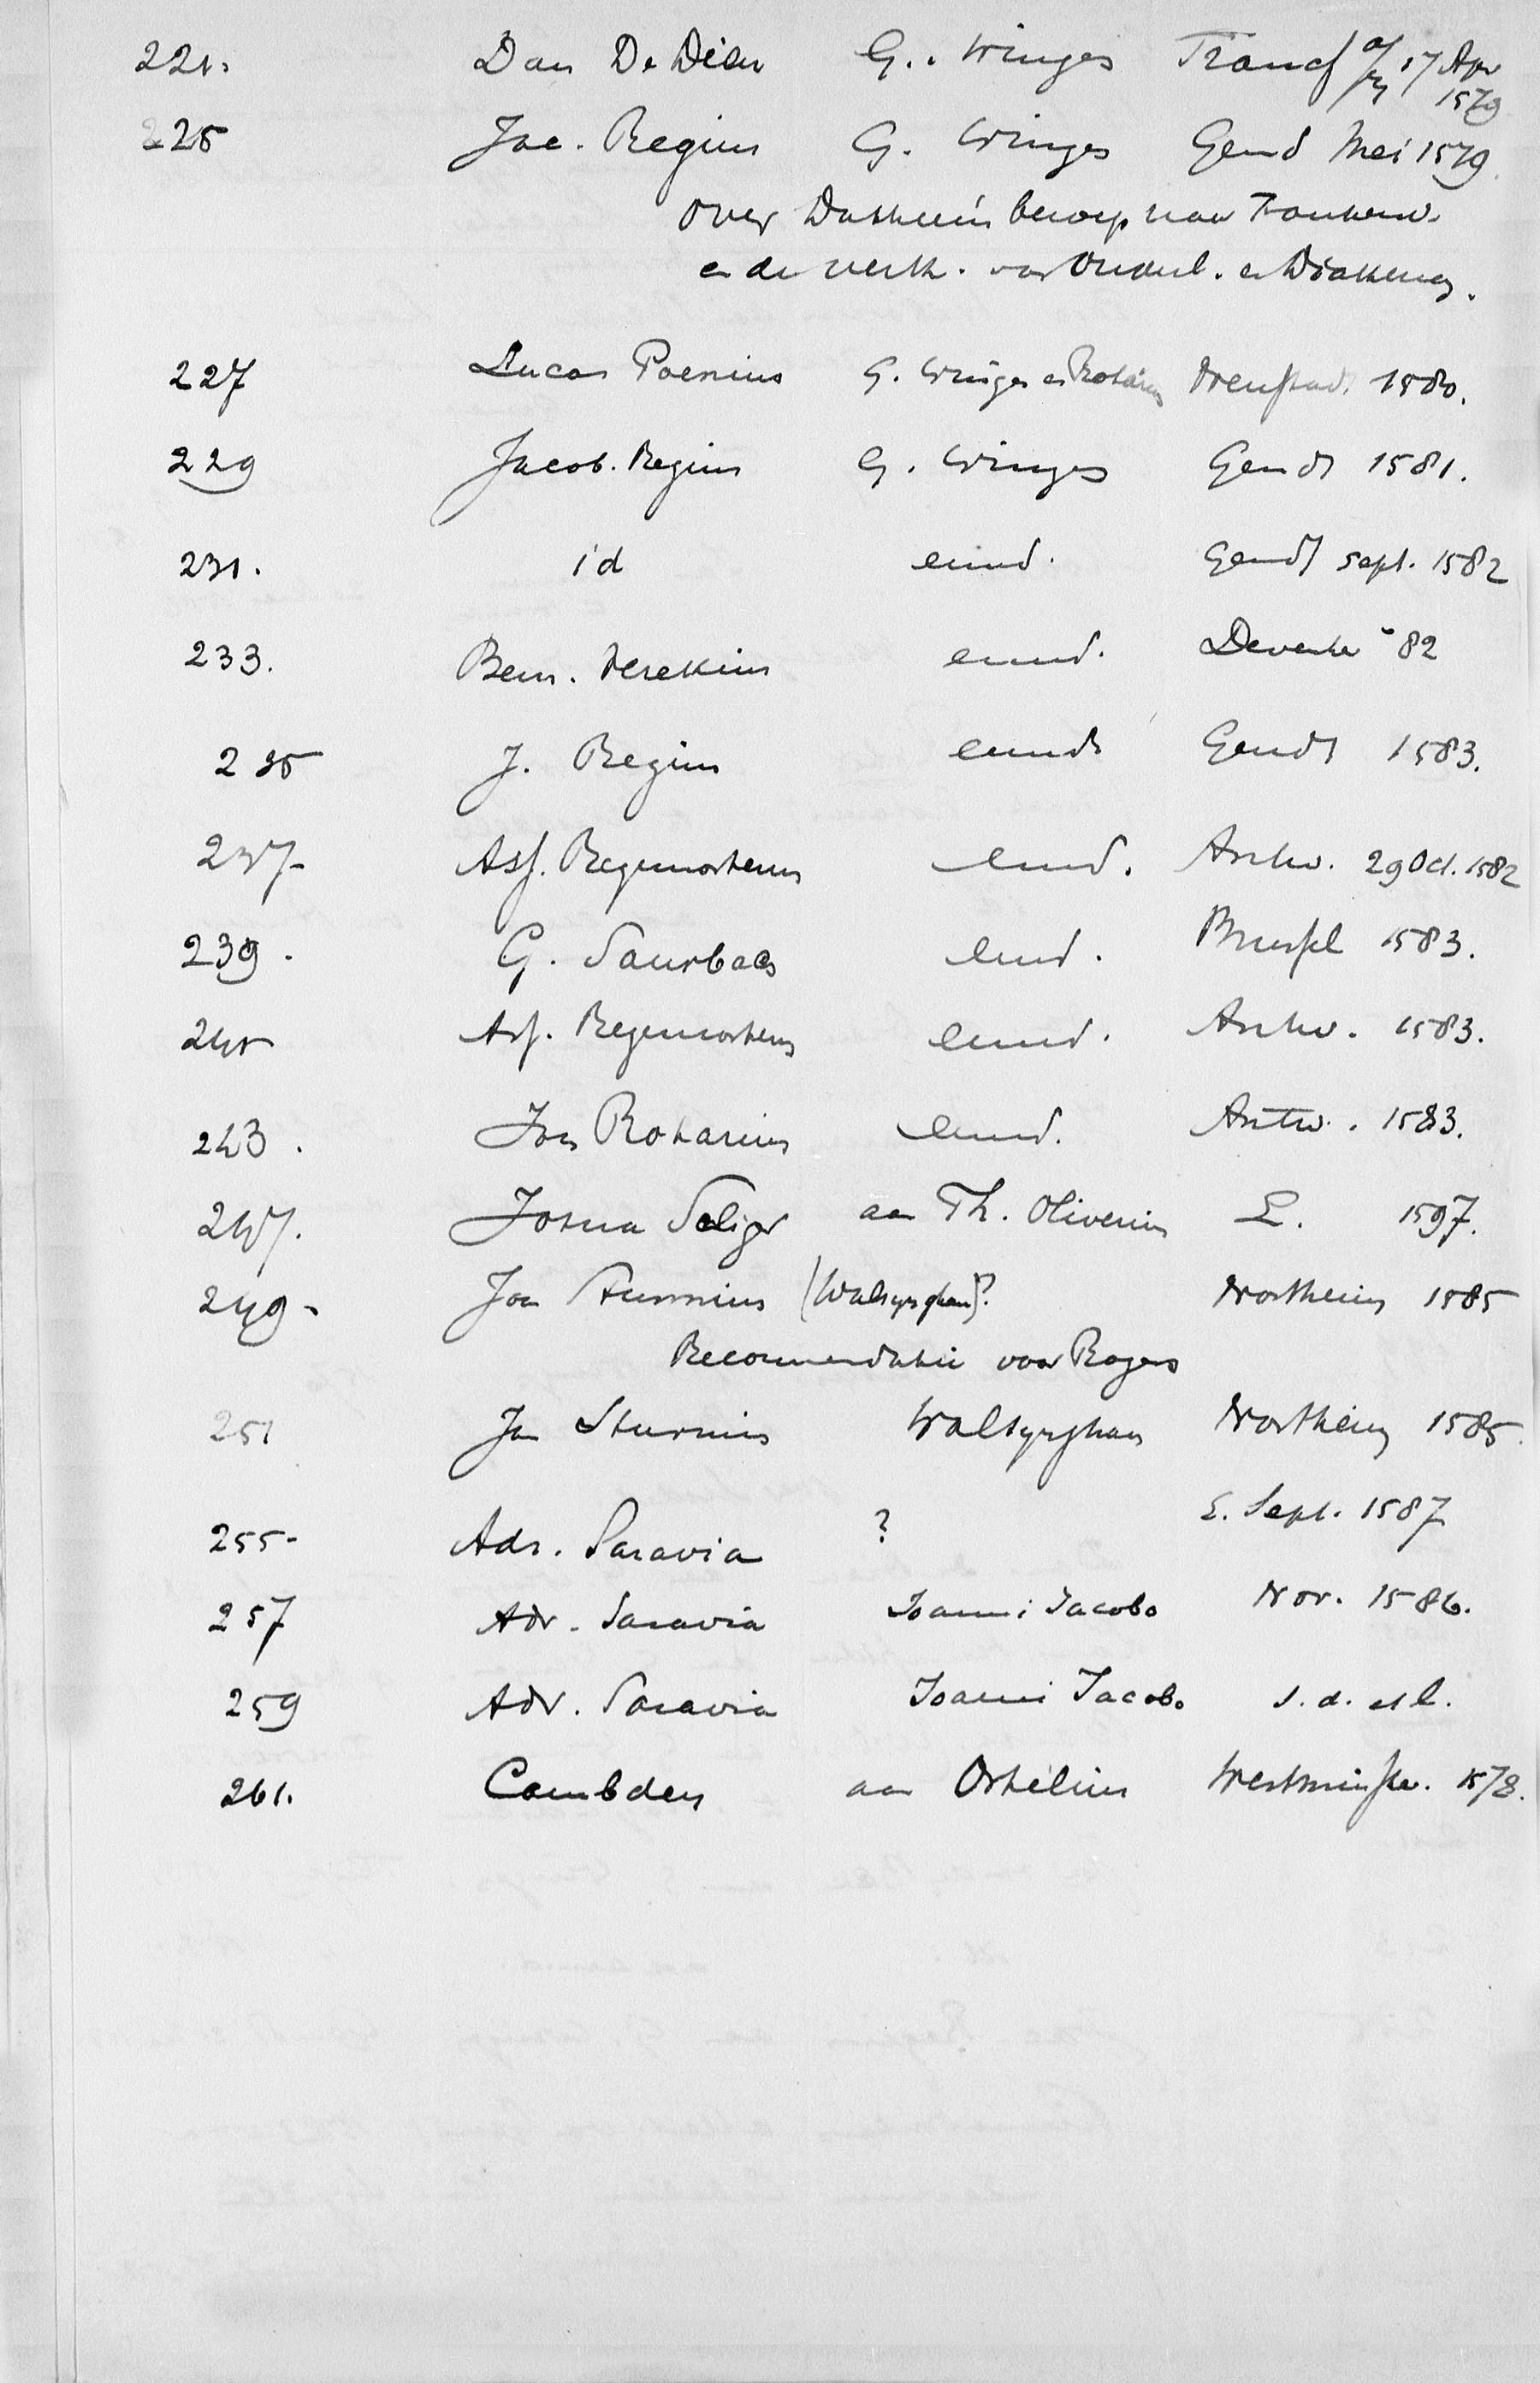 221. Dan De Dieu G. Winges Francf a/m 17 Apr 1579
225 Jac. Regius G. Winges Gend Mei 1579.
over Datheen's beroep naar Frankend.
en de verk. van Ouderl. en Diakenen.
227 Lucas Poenius G. Winges en Rotarius Neustad 1580.
229 Jacob. Regius G. Winges Gendt 1581.
231. id eund. Gendt Sept. 1582
233. Bern. eund. Deventer 82
235 J. Regius eund. Gendt 1583.
237- Ass. Regemorterus eund. Antw. 29 Oct. 1582
239. G. eund. Brussel 1583.
241 Ass. Regemorterus eund. Antw. 1583.
243. Jon Rotarius eund. Antw. 1583.
247. Josua Seliger aan Th. Oliverius L. 1597.
249- Joa Sturmius (Walsyngham)? Northeim 1585
Recommendatie voor Rogers
251 Jo Sturmius Walsyngham Northeim 1585.
255- Adr. Saravia ? L. Sept. 1587
257 Adr. Saravia Joanni Jacobo Nov. 1586.
259 Adr. Saravia Joanni Jacobo s. d. et l.
261. Cambden aan Ortelius Westminster. 1578.